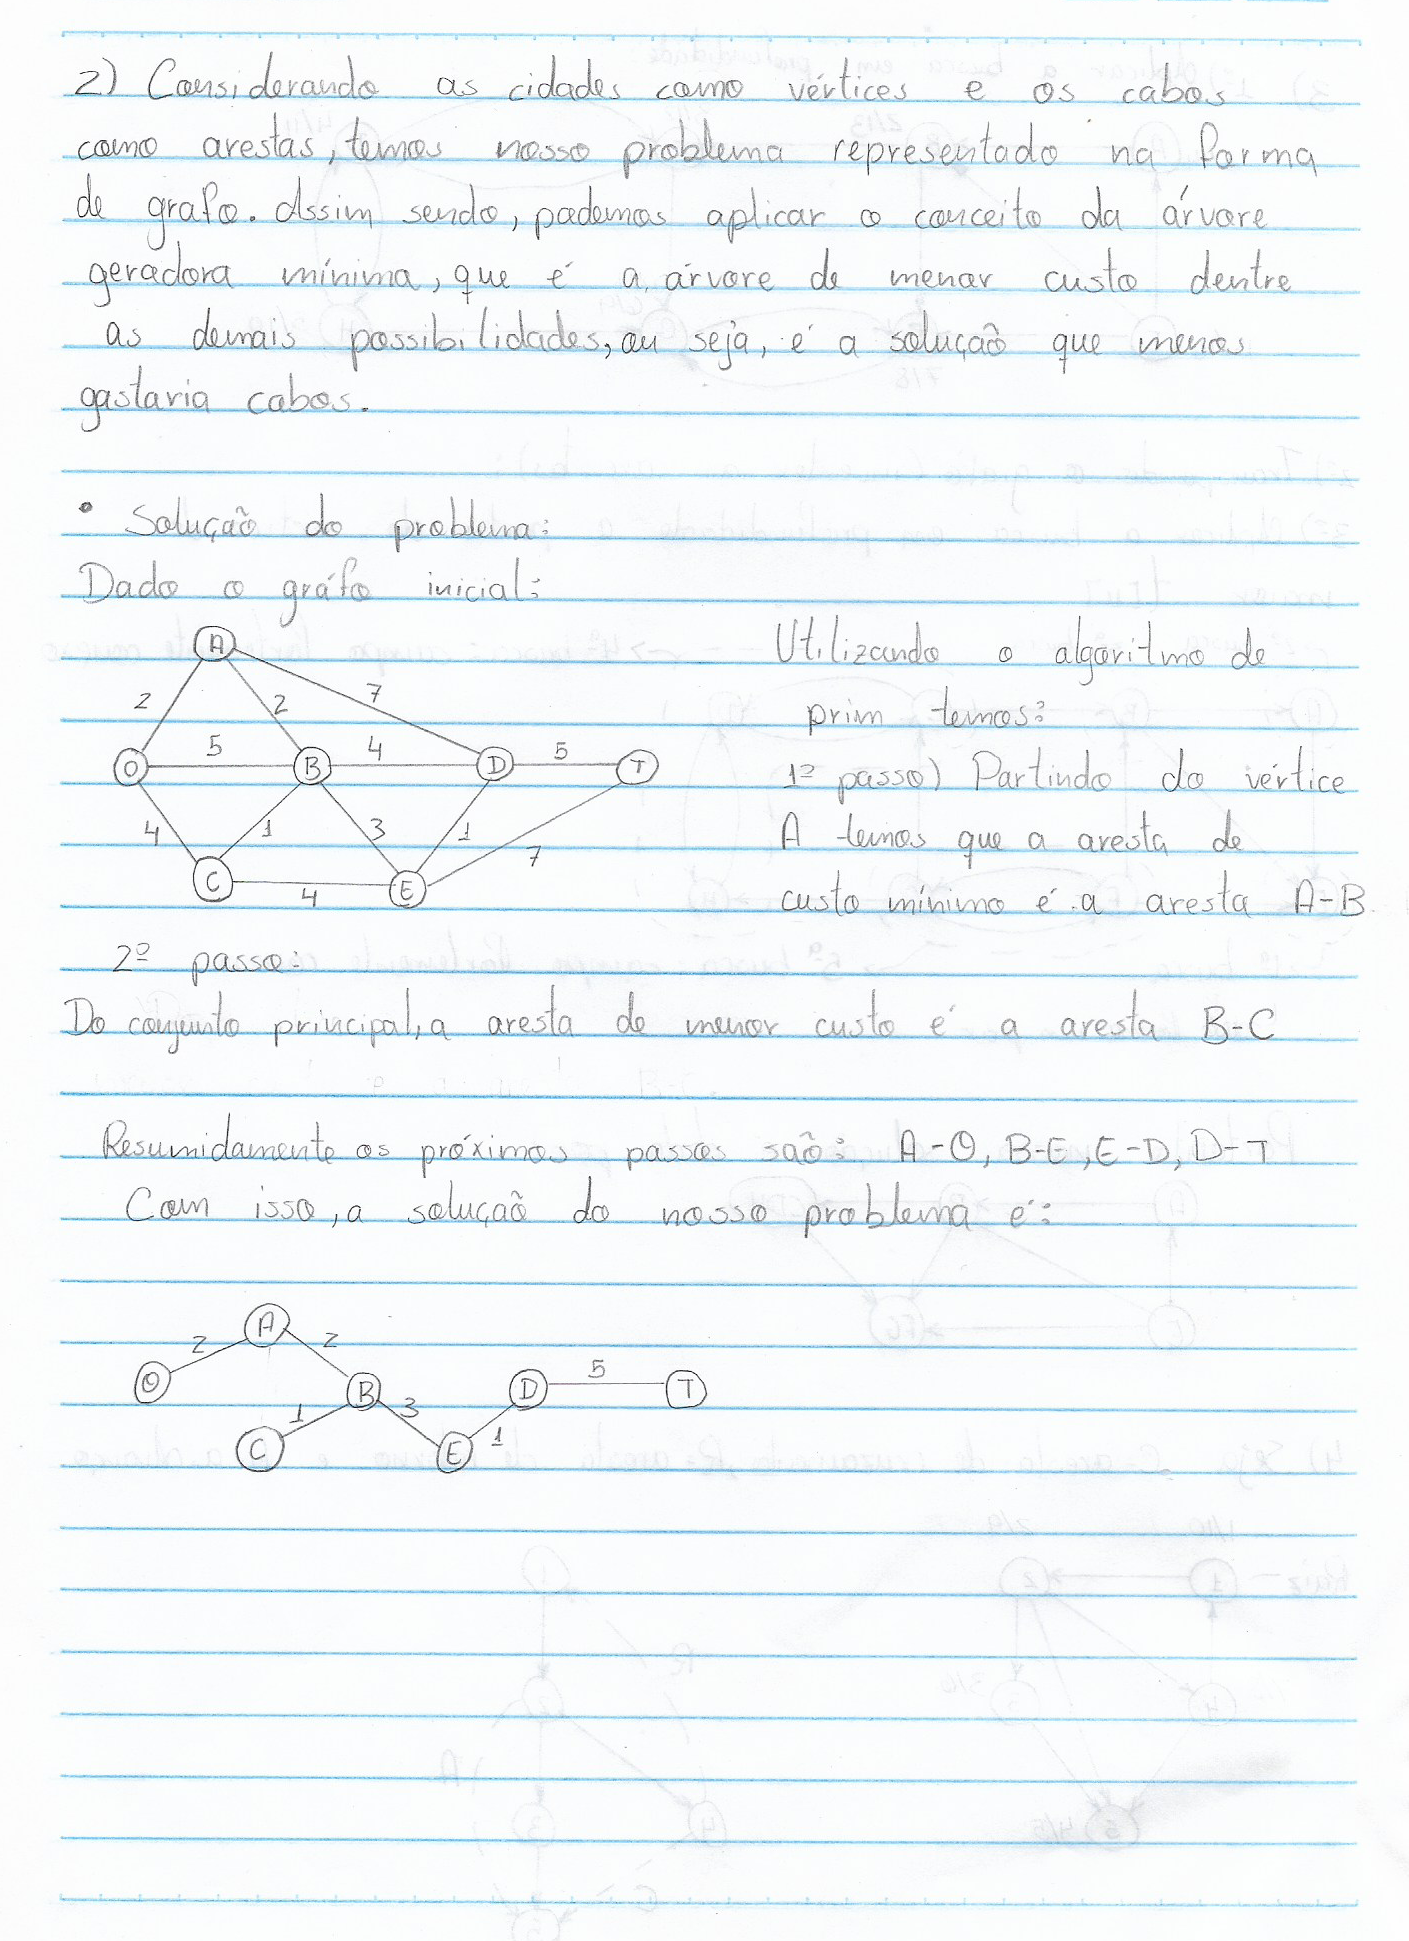 2) Considerando as cidades como vértices e os cabos
como arestas, temos nosso problema representado na forma
de grafo. Assim sendo, podemos aplicar o conceito da árvore
geradora mínima, que é a árvore de menor custo dentre
as demais possibilidades, ou seja, é a solução que menos
gastaria cabos.
• Solução do problema:
Dado o gráfo inicial:
A
2 2 7
O 5 B 4 D 5 T
4 1 3 1 7
C 4 E
Utilizando o algoritmo de
prim temos:
1º passo) Partindo do vértice
A temos que a aresta de
custo mínimo é a aresta A-B
2º passo:
Do conjunto principal, a aresta de menor custo é a aresta B-C
Resumidamente os próximos passos são: A-O, B-E, E-D, D-T
Com isso, a solução do nosso problema é:
A
2 2
O B D 5 T
1 3 1
C E